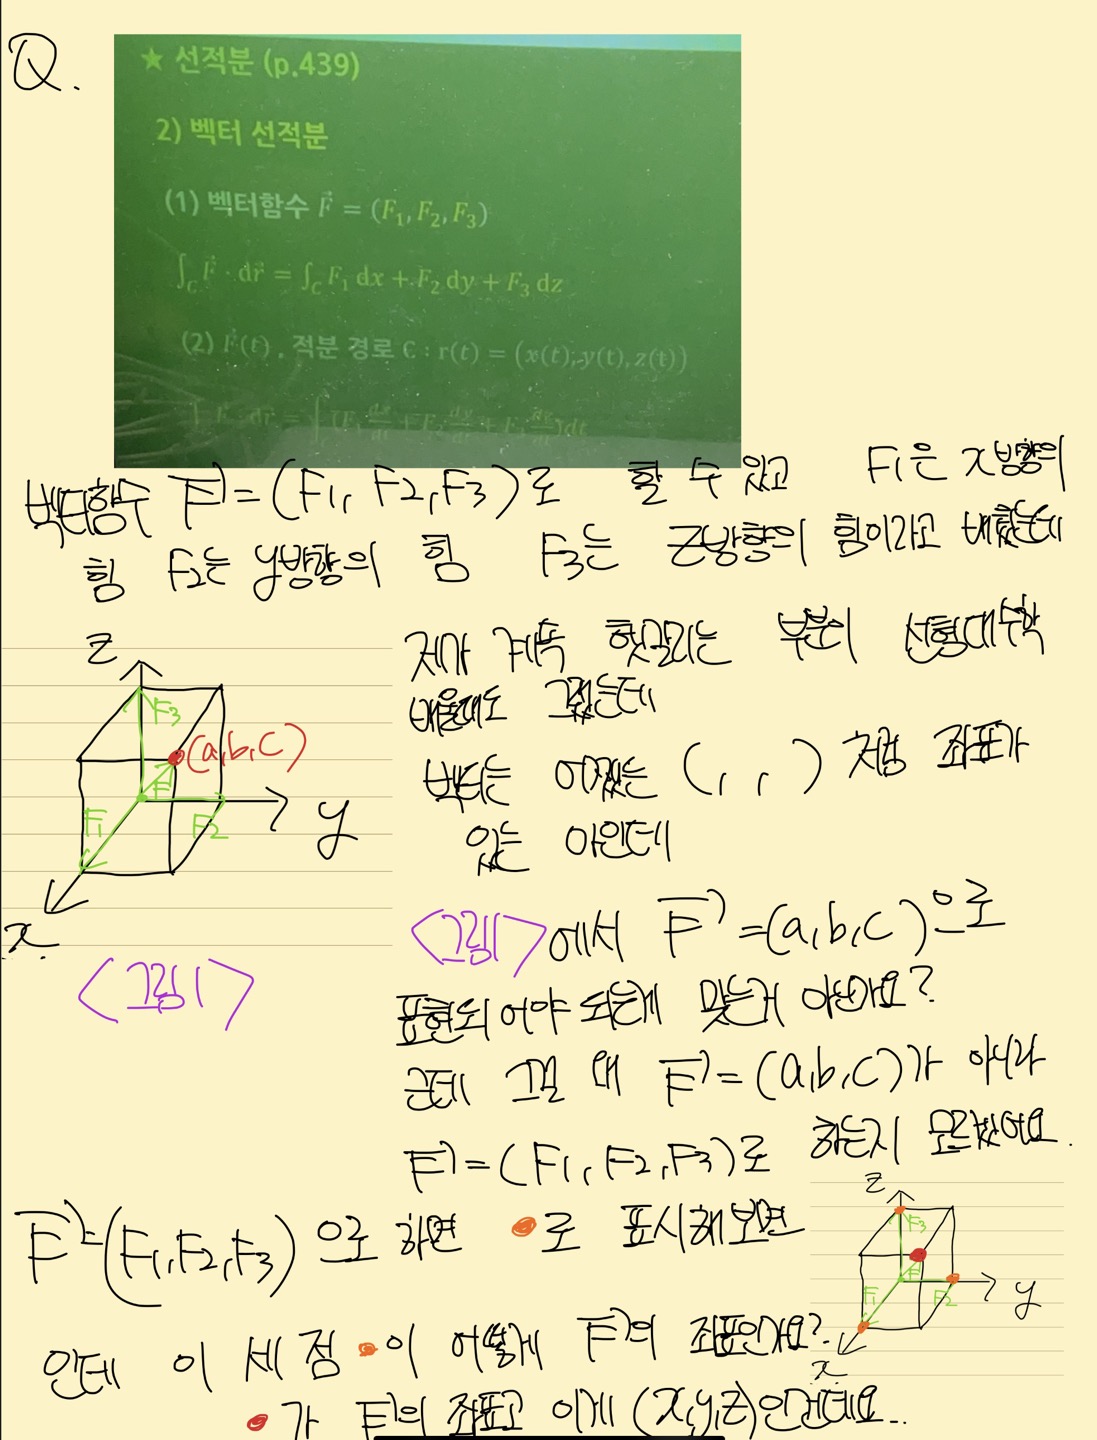 Q.
★ 선적분 (p.439)
2) 벡터 선적분
(1) 벡터함수 F⃗ = (F₁, F₂, F₃)
∫_C F⃗ · dr⃗ = ∫_C F₁ dx + F₂ dy + F₃ dz
(2) F⃗(t), 적분 경로 C : r(t) = (x(t), y(t), z(t))
벡터함수 F⃗ = (F1, F2, F3)로 할 수 있고 F1은 x방향의
힘 F2는 y방향의 힘 F3는 z방향의 힘이라고 배웠는데
z
F3
(a,b,c)
F
F1
F2
y
x
<그림1>
저가 계속 헷갈리는 부분이 선형대수학
배울때도 그랬는데
벡터는 어쨌든 ( , , ) 처럼 좌표가
있는 아인데
<그림1>에서 F⃗ = (a,b,c)으로
표현되어야 되는게 맞는거 아닌가요?
근데 그럴 때 F⃗ = (a,b,c)가 아니라
F⃗ = (F1, F2, F3)로 하는지 모르겠어요.
F⃗ = (F1, F2, F3)으로 하면 로 표시해보면
z
F3
F
F1
F2
y
x
인데 이 세 점 이 어떻게 F⃗의 좌표인가요?
가 F⃗의 좌표고 이게 (x,y,z)인건데요..